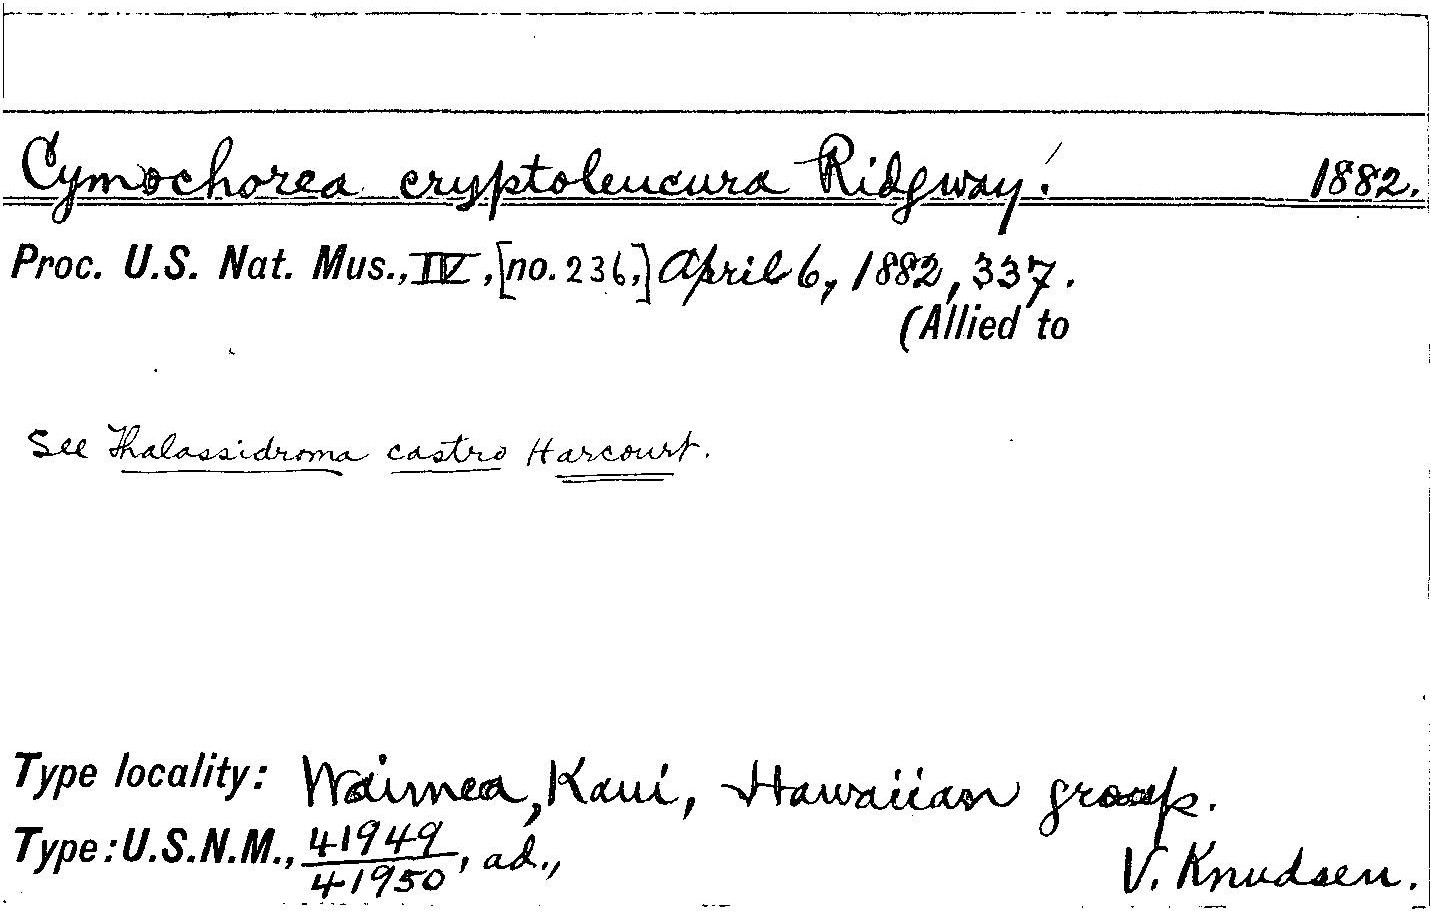 Cymochorea cryptoleucura Ridgway. 1882.
Proc. U.S. Nat. Mus., IV, [no. 236,] April 6, 1882, 337.
(Allied to
See Thalassidroma castro Harcourt.
Type locality: Waimea, Kaui, Hawaiian group.
Type: U.S.N.M., 41949/41950, ad.,
V. Knudsen.